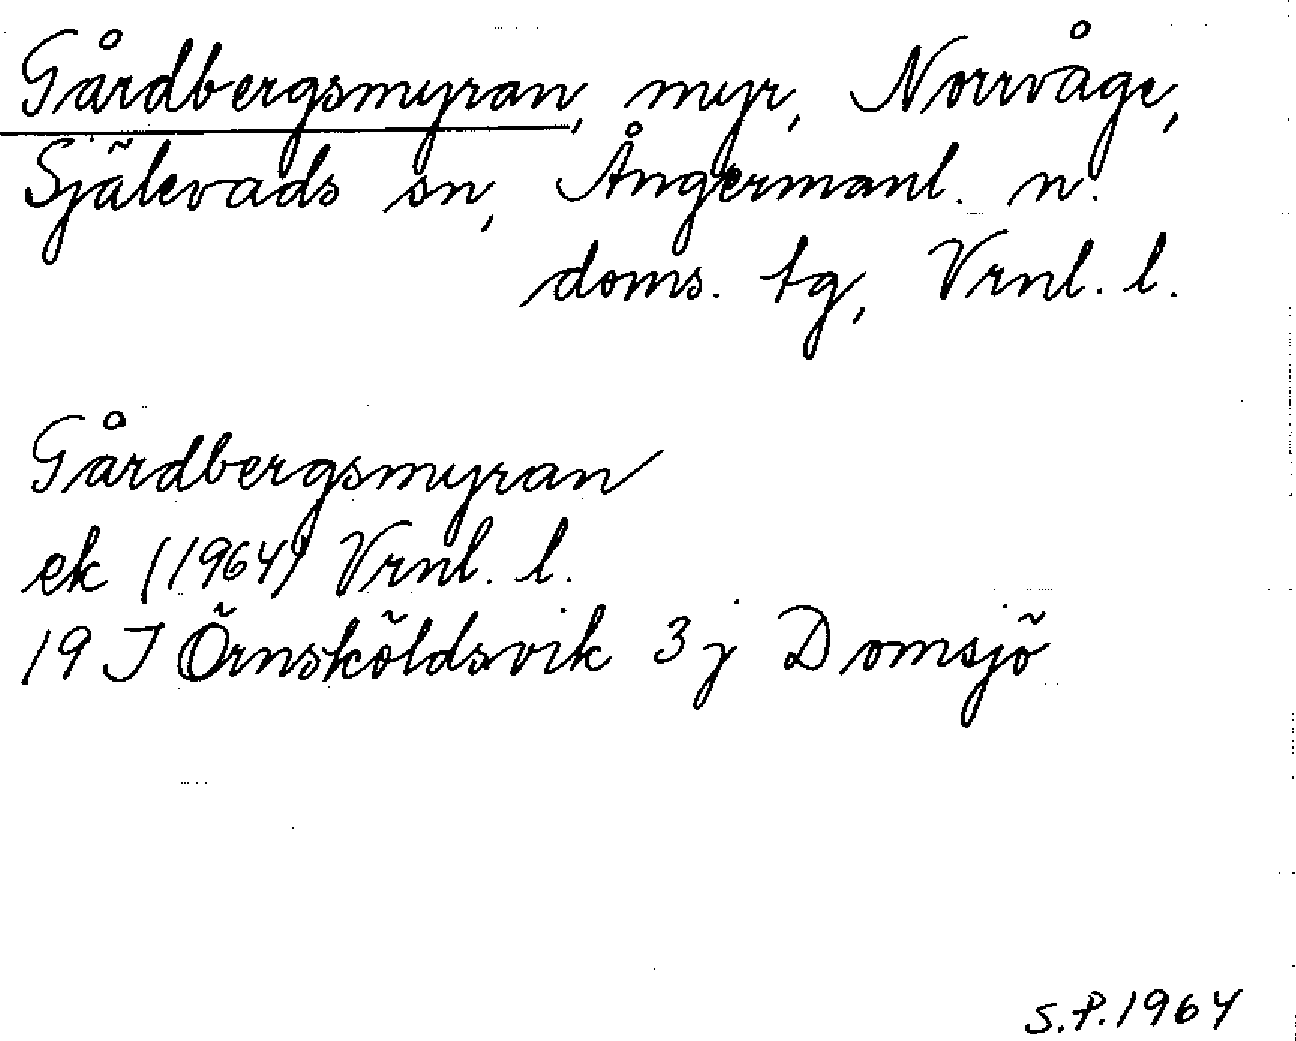 Gårdbergsmyran, myr, Norrvåge,
Själevads sn, Ångermanl. n.
doms. tg, Vrnl. l.
Gårdbergsmyran
ek (1964) Vrnl. l.
19 I Örnsköldsvik 3 j Domsjö
S.P. 1964